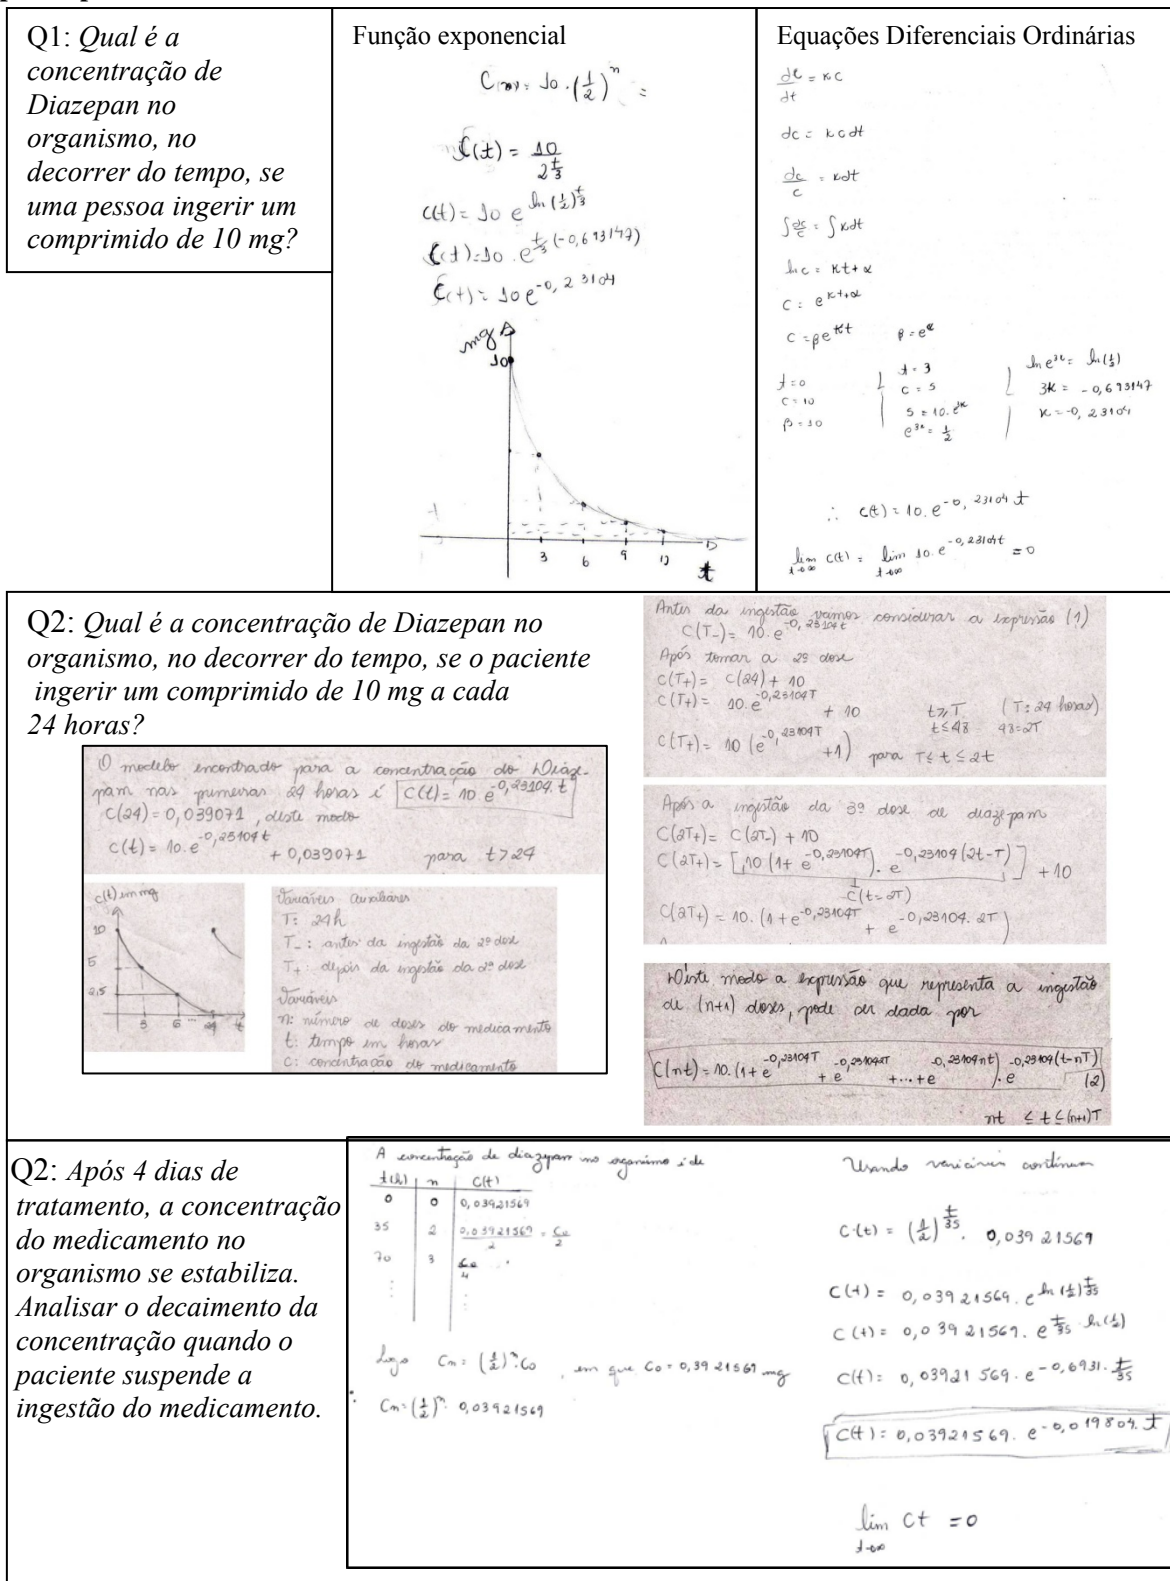 Q1: Qual é a
concentração de
Diazepan no
organismo, no
decorrer do tempo, se
uma pessoa ingerir um
comprimido de 10 mg?
Função exponencial
= 10 . (1/2)^n =
C(t) = 10 / 2^(t/3)
c(t) = 10 e^(ln(1/2)^(t/3))
C(t) = 10 . e^(t/3 (-0,693147))
C(t) = 10 e^(-0,23104)
mg
10
3 6 9 12
t
Equações Diferenciais Ordinárias
dc/dt = κc
dc = κcdt
dc/c = κdt
∫dc/c = ∫κdt
ln c = κt + α
C = e^(κt+α)
C = βe^(κt) β = e^α
t = 0
C = 10
β = 10
t = 3
C = 5
5 = 10. e^(3κ)
e^(3κ) = 1/2
ln e^(3κ) = ln(1/2)
3κ = -0,693147
κ = -0,23104
∴ c(t) = 10. e^(-0,23104 t)
lim t→∞ c(t) = lim t→∞ 10. e^(-0,23104t) = 0
Q2: Qual é a concentração de Diazepan no
organismo, no decorrer do tempo, se o paciente
ingerir um comprimido de 10 mg a cada
24 horas?
O modelo encontrado para a concentração do Diaze-
pam nas primeiras 24 horas é C(t) = 10 e^(-0,23104.t)
C(24) = 0,039071, deste modo
C(t) = 10. e^(-0,23104t) + 0,039071 para t>24
c(t) em mg
10
5
2,5
3 6 ... 24 t
Variáveis auxiliares
T: 24h
T_: antes da ingestão da 2ª dose
T+: depois da ingestão da 2ª dose
Variáveis
n: número de doses do medicamento
t: tempo em horas
C: concentração do medicamento
Antes da ingestão vamos considerar a expressão (1)
C(T_) = 10. e^(-0,23104t)
Após tomar a 2ª dose
C(T+) = C(24) + 10
C(T+) = 10. e^(-0,23104T) + 10 t⩾T (T: 24 horas)
t≤48 48=2T
C(T+) = 10 (e^(-0,23104T) +1) para T≤ t ≤ 2t
Após a ingestão da 3ª dose de diazepam
C(2T+) = C(2T_) + 10
C(2T+) = [10 (1+ e^(-0,23104T)). e^(-0,23104(2t-T))] + 10
C(t=2T)
C(2T+) = 10. (1+e^(-0,23104T) + e^(-0,23104.2T))
Deste modo a expressão que representa a ingestão
de (n+1) doses, pode ser dada por
C(nt) = 10. (1+ e^(-0,23104T) + e^(-0,23104 2T) + ... + e^(-0,23104nt)). e^(-0,23104(t-nT)) (2)
nt ≤ t ≤ (n+1)T
Q2: Após 4 dias de
tratamento, a concentração
do medicamento no
organismo se estabiliza.
Analisar o decaimento da
concentração quando o
paciente suspende a
ingestão do medicamento.
A concentração de diazepam no organismo é de
t(h) n C(t)
0 0 0,03921569
35 2 0,03921569/2 = C0/2
70 3 C0/4
Logo Cn = (1/2)^n. C0, em que C0 = 0,3921569 mg
∴ Cn = (1/2)^n. 0,03921569
Usando variáveis contínuas
C(t) = (1/2)^(t/35). 0,03921569
C(t) = 0,03921569. e^(ln(1/2)^(t/35))
C(t) = 0,03921569. e^(t/35 . ln(1/2))
C(t) = 0,03921569. e^(-0,6931. t/35)
C(t) = 0,03921569. e^(-0,019804. t)
lim t→∞ Ct = 0